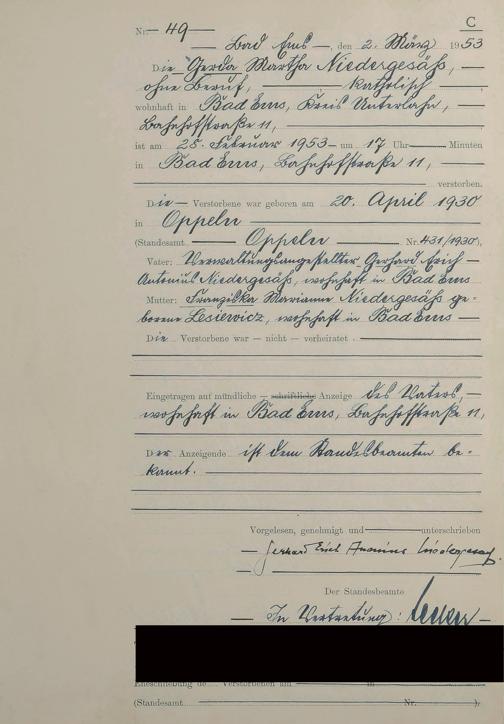 C
Nr. 49
Bad Ems, den 2. März 1953
Die Gerda Martha Niedergesäß,
ohne Beruf, katholisch
wohnhaft in Bad Ems, Kreis Unterlahn,
Bahnhofstraße 11,
ist am 28. Februar 1953 um 17 Uhr Minuten
in Bad Ems, Bahnhofstraße 11,
verstorben.
Die Verstorbene war geboren am 20. April 1930
in Oppeln
(Standesamt Oppeln Nr. 431/1930),
Vater: Verwaltungsangestellter Gerhard Erich
Antonius Niedergesäß, wohnhaft in Bad Ems
Mutter: Franziska Marianne Niedergesäß ge-
borene Lesiewicz, wohnhaft in Bad Ems
Die Verstorbene war — nicht — verheiratet
Eingetragen auf mündliche — schriftliche Anzeige des Vaters,
wohnhaft in Bad Ems, Bahnhofstraße 11,
Der Anzeigende ist dem Standesbeamten be-
kannt.
Vorgelesen, genehmigt und unterschrieben
Gerhard Erich Antonius Niedergesäß
Der Standesbeamte
In Vertretung:
Eheschließung de Verstorbenen am in
(Standesamt Nr. ),